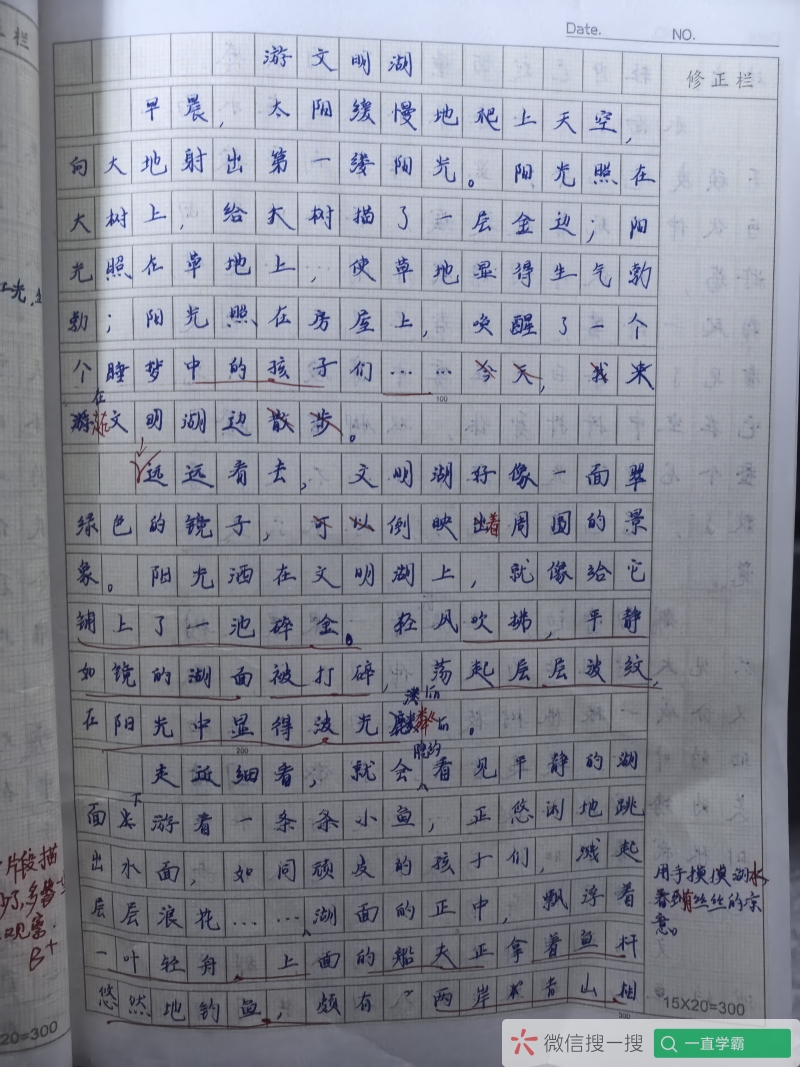 Date.
NO.
正栏
修正栏
游文明湖
早晨，太阳缓慢地爬上天空，
向大地射出第一缕阳光。阳光照在
大树上，给大树描了一层金边；阳
光照在草地上，使草地显得生气勃
勃；阳光照在房屋上，唤醒了一个
个睡梦中的孩子们……今天，我来
在
游文明湖边散步。
100
远远看去，文明湖好像一面翠
绿色的镜子，可以倒映出着周围的景
象。阳光洒在文明湖上，就像给它
铺上了一池碎金。轻风吹拂，平静
如镜的湖面被打碎，荡起层层波纹，
lin
在阳光中显得波光粼粼。
200
隐约
走近细看，就会看见平静的湖
下
面游着一条条小鱼，正悠闲地跳
出水面，如同顽皮的孩子们，溅起
层层浪花……湖面的正中，飘浮着
一叶轻舟。上面的船夫正拿着鱼杆
悠然地钓鱼，颇有"两岸青山相
300
用手摸摸湖水，
有丝丝的凉
意。
15X20=300
片段描
多
观察.
B+
20=300
微信搜一搜
一直学霸